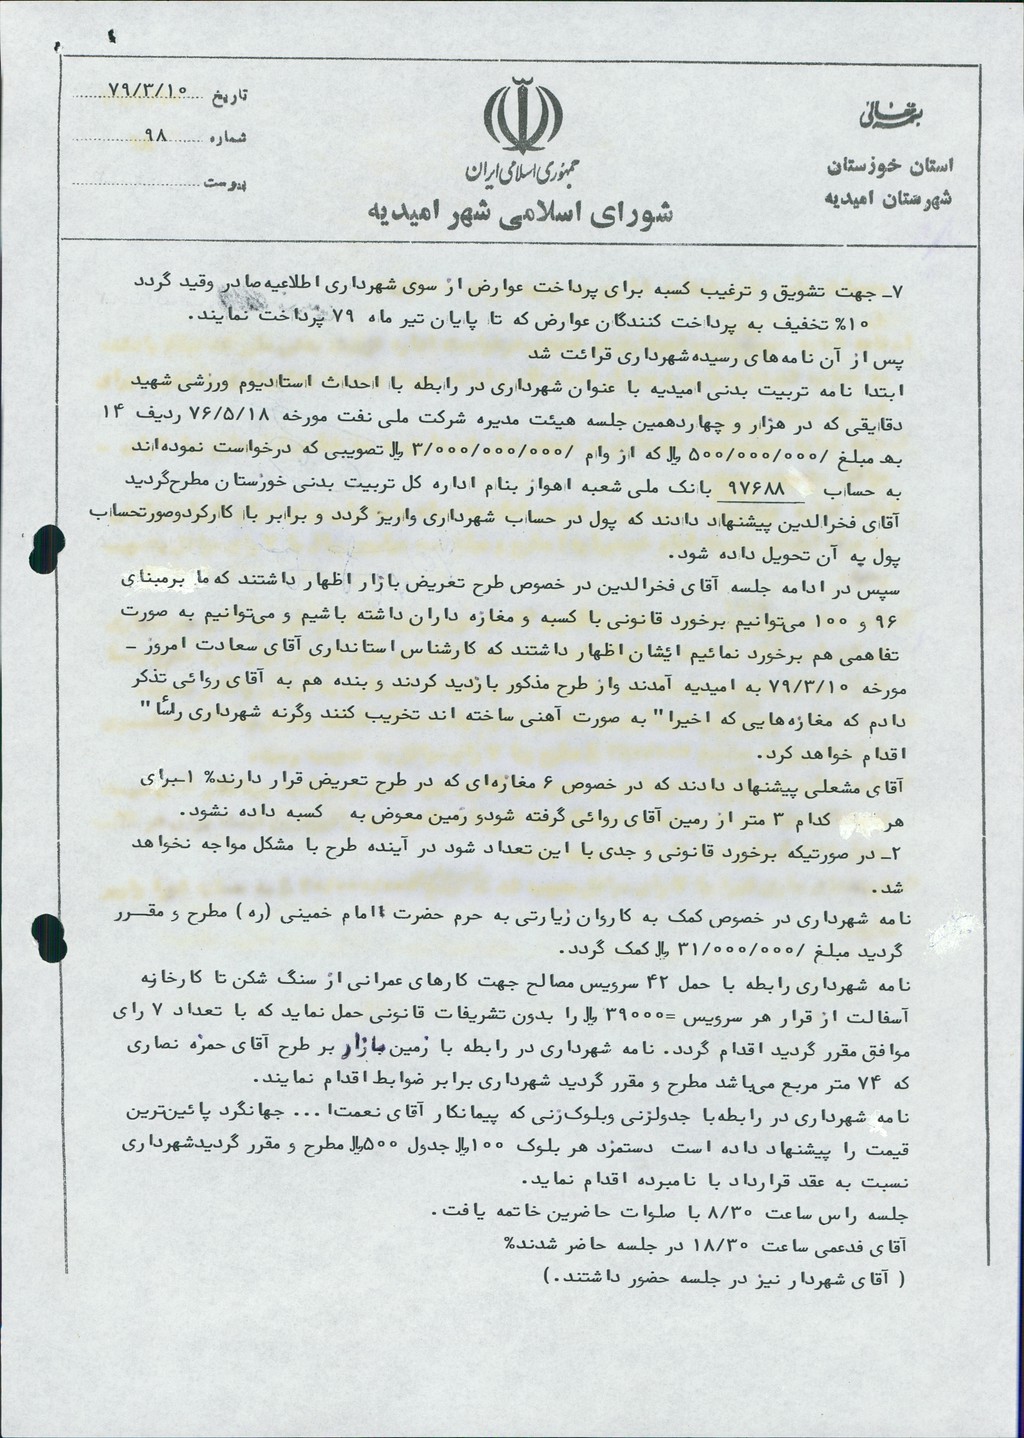 بسمه تعالی
استان خوزستان
شهرستان امیدیه
جمهوری اسلامی ایران
شورای اسلامی شهر امیدیه
تاریخ ۷۹/۳/۱۰
شماره ۹۸
پیوست
۷ـ جهت تشویق و ترغیب کسبه برای پرداخت عوارض از سوی شهرداری اطلاعیه صادر وقید گردد
۱۰% تخفیف به پرداخت کنندگان عوارض که تا پایان تیر ماه ۷۹ پرداخت نمایند.
پس از آن نامه‌های رسیده شهرداری قرائت شد
ابتدا نامه تربیت بدنی امیدیه با عنوان شهرداری در رابطه با احداث استادیوم ورزشی شهید
دقایقی که در هزار و چهاردهمین جلسه هیئت مدیره شرکت ملی نفت مورخه ۷۶/۵/۱۸ ردیف ۱۴
به مبلغ /۵۰۰/۰۰۰/۰۰۰ ریال که از وام /۳/۰۰۰/۰۰۰/۰۰۰ ریال تصویبی که درخواست نموده‌اند
به حساب ۹۷۶۸۸ بانک ملی شعبه اهواز بنام اداره کل تربیت بدنی خوزستان مطرح گردید
آقای فخرالدین پیشنهاد دادند که پول در حساب شهرداری واریز گردد و برابر با کارکرد وصورتحساب
پول به آن تحویل داده شود.
سپس در ادامه جلسه آقای فخرالدین در خصوص طرح تعریض بازار اظهار داشتند که ما برمبنای
۹۶ و ۱۰۰ می‌توانیم برخورد قانونی با کسبه و مغازه داران داشته باشیم و می‌توانیم به صورت
تفاهمی هم برخورد نمائیم ایشان اظهار داشتند که کارشناس استانداری آقای سعادت امروز ـ
مورخه ۷۹/۳/۱۰ به امیدیه آمدند واز طرح مذکور بازدید کردند و بنده هم به آقای روائی تذکر
دادم که مغازه‌هایی که اخیرا" به صورت آهنی ساخته اند تخریب کنند وگرنه شهرداری رأسا"
اقدام خواهد کرد.
آقای مشعلی پیشنهاد دادند که در خصوص ۶ مغازه‌ای که در طرح تعریض قرار دارند% ۱ـ برای
هر کدام ۳ متر از زمین آقای روائی گرفته شود و زمین معوض به کسبه داده نشود.
۲ـ در صورتیکه برخورد قانونی و جدی با این تعداد شود در آینده طرح با مشکل مواجه نخواهد
شد.
نامه شهرداری در خصوص کمک به کاروان زیارتی به حرم حضرت امام خمینی (ره) مطرح و مقرر
گردید مبلغ /۳۱/۰۰۰/۰۰۰ ریال کمک گردد.
نامه شهرداری رابطه با حمل ۴۲ سرویس مصالح جهت کارهای عمرانی از سنگ شکن تا کارخانه
آسفالت از قرار هر سرویس =۳۹۰۰۰ ریال را بدون تشریفات قانونی حمل نماید که با تعداد ۷ رای
موافق مقرر گردید اقدام گردد. نامه شهرداری در رابطه با زمین بازار بر طرح آقای حمزه نصاری
که ۷۴ متر مربع می‌باشد مطرح و مقرر گردید شهرداری برابر ضوابط اقدام نمایند.
نامه شهرداری در رابطه با جدولزنی وبلوک‌زنی که پیمانکار آقای نعمت‌ا... جهانگرد پائین‌ترین
قیمت را پیشنهاد داده است دستمزد هر بلوک ۱۰۰ ریال جدول ۵۰۰ ریال مطرح و مقرر گردید شهرداری
نسبت به عقد قرارداد با نامبرده اقدام نماید.
جلسه راس ساعت ۸/۳۰ با صلوات حاضرین خاتمه یافت.
آقای فدعمی ساعت ۱۸/۳۰ در جلسه حاضر شدند%
( آقای شهردار نیز در جلسه حضور داشتند.)